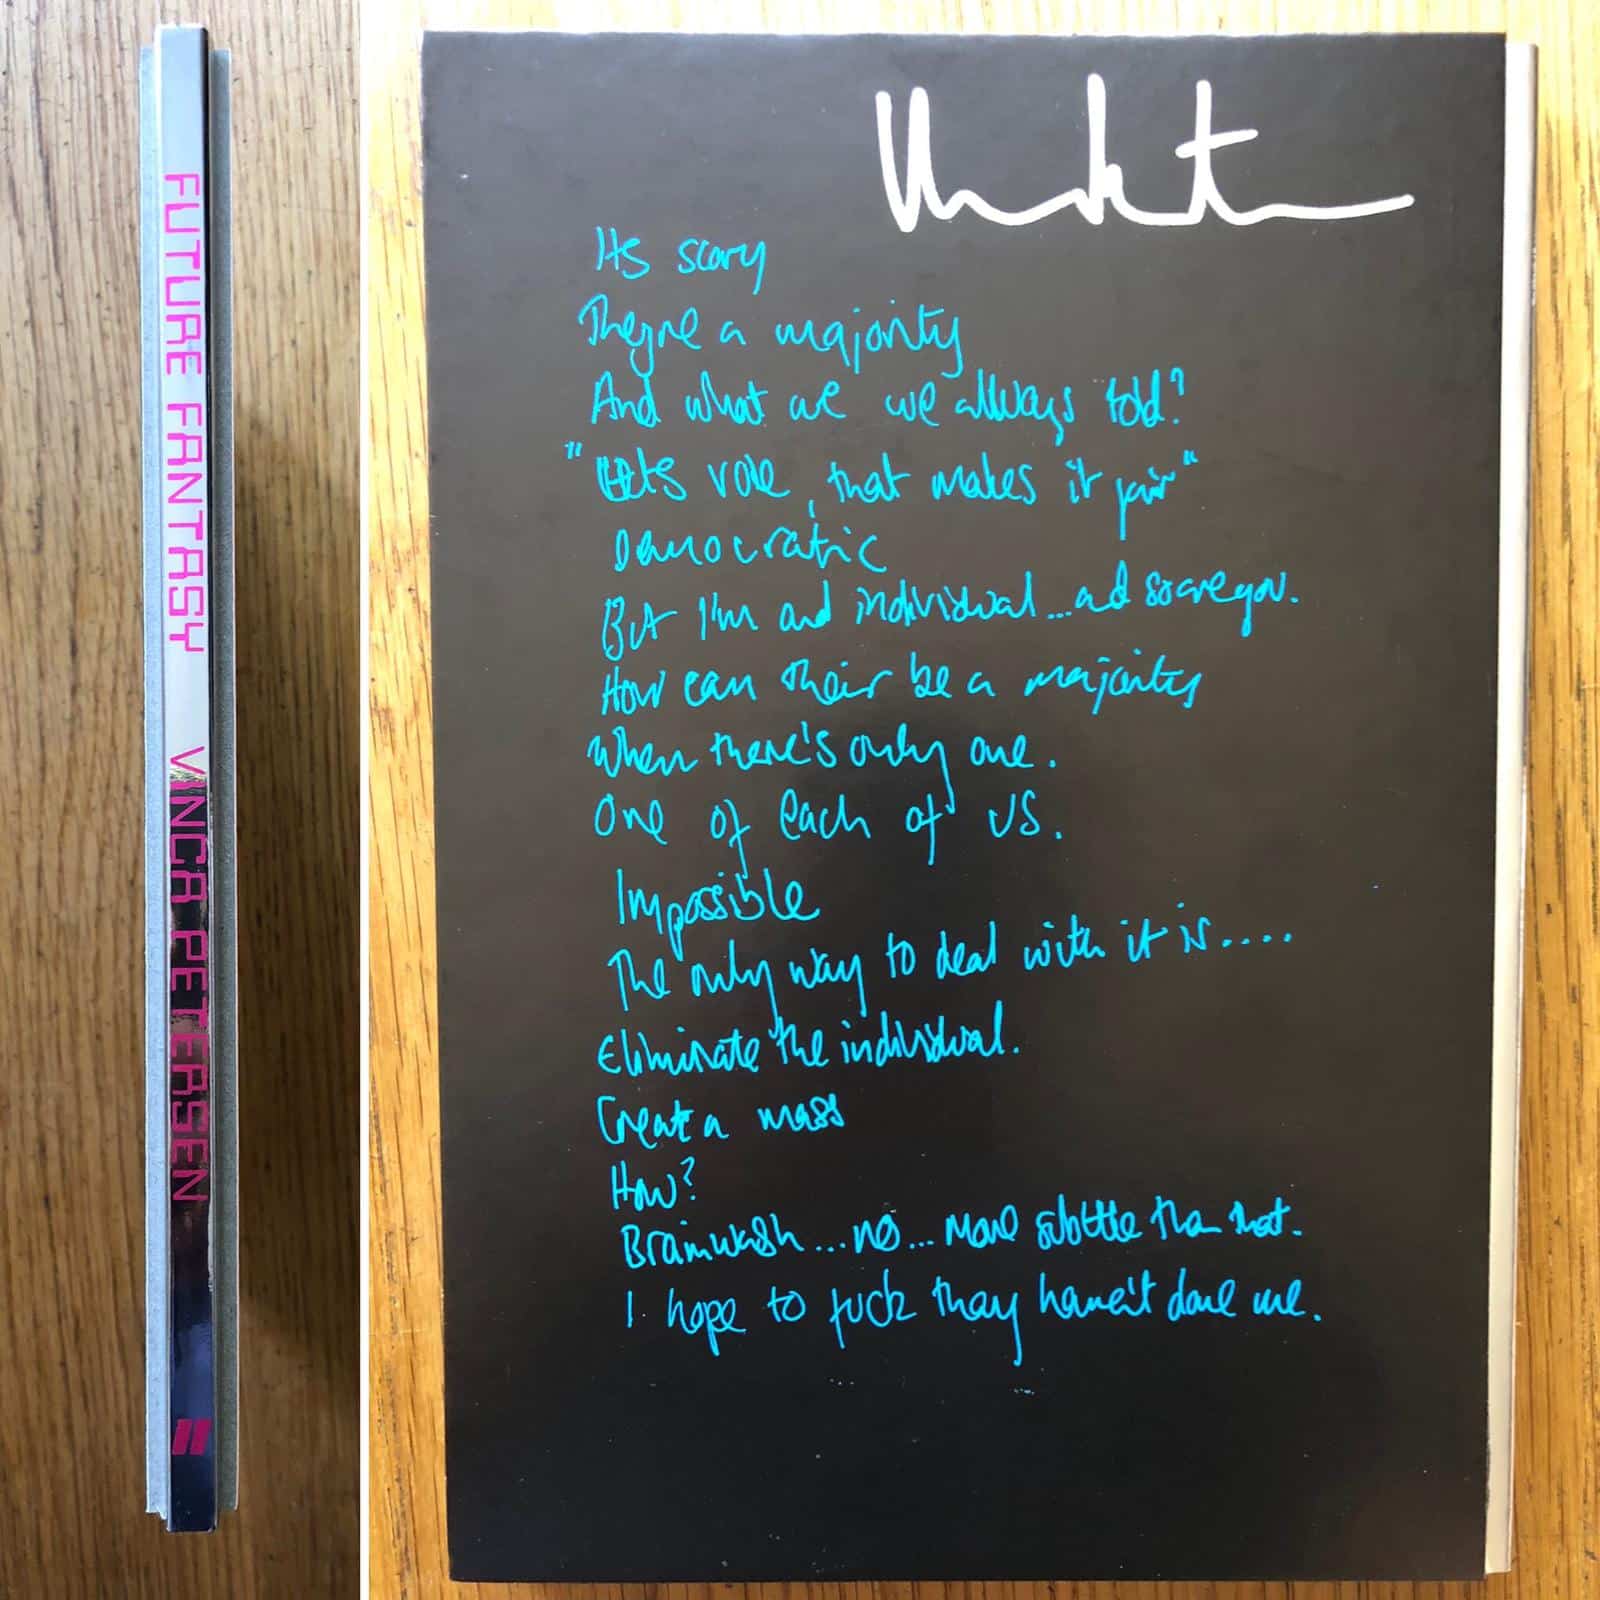 FUTURE FANTASY VINCA PETERSEN
Its scary
Theyre a majority
And what are we allways told?
"Lets vote, that makes it fair"
Democratic
But I'm and individual...and so are you.
How can their be a majority
When there's only one.
One of each of US.
Impossible
The only way to deal with it is....
Eliminate the individual.
Create a mass
How?
Brainwash...no...more subttle than that.
I hope to fuck they haven't done me.